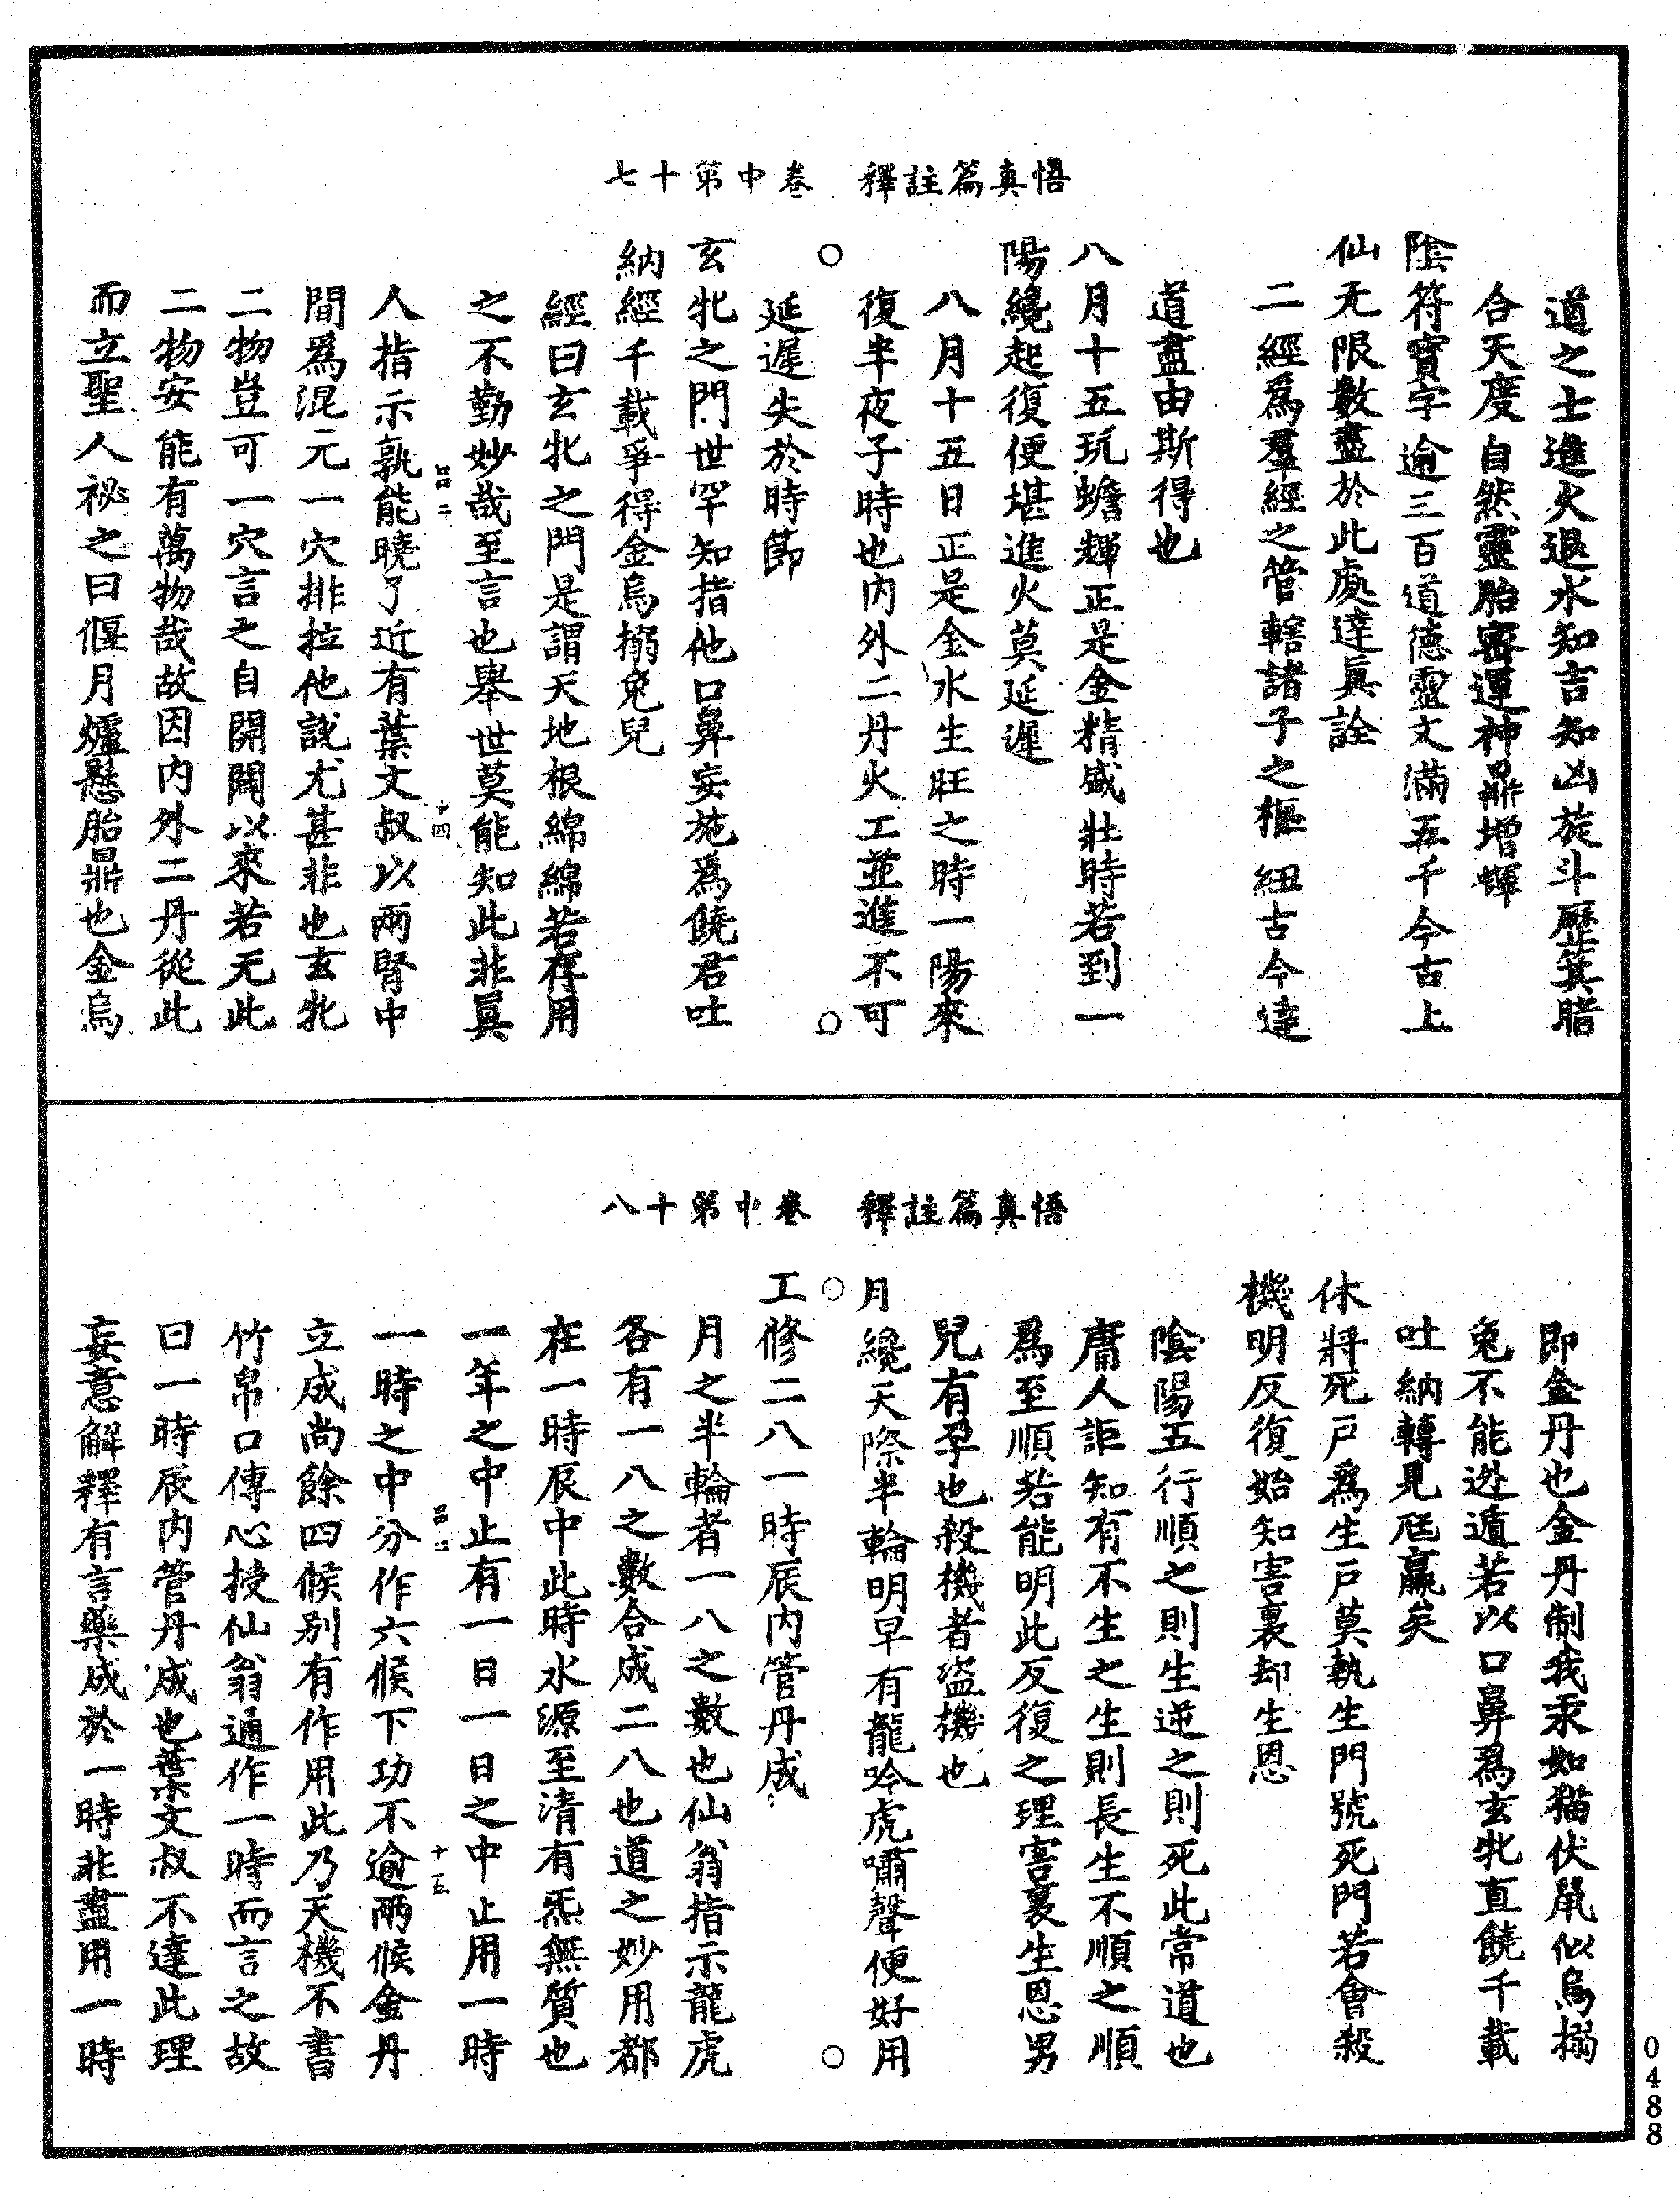 悟真篇註釋　卷中第十七
道之士進火退水知吉知凶旋斗歷箕暗
合天度自然靈胎密運神鼎增輝
陰符寶字逾三百道德靈文滿五千今古上
仙无限數盡於此處達眞詮
二經爲羣經之管轄諸子之樞紐古今達
道盡由斯得也
八月十五玩蟾輝正是金精盛壯時若到一
陽纔起復便堪進火莫延遲
八月十五日正是金水生旺之時一陽來
復半夜子時也内外二丹火工並進不可
延遲失於時節
玄牝之門世罕知指他口鼻妄施爲饒君吐
納經千載爭得金烏搦兔兒
經曰玄牝之門是謂天地根綿綿若存用
之不勤妙哉至言也舉世莫能知此非眞
人指示孰能曉了近有葉文叔以兩腎中
呂二　十四
間爲混元一穴排拉他說尤甚非也玄牝
二物豈可一穴言之自開闢以來若无此
二物安能有萬物哉故因内外二丹從此
而立聖人祕之曰偃月爐懸胎鼎也金烏
悟真篇註釋　卷中第十八
即金丹也金丹制我汞如猫伏鼠似烏搦
兔不能迯遁若以口鼻爲玄牝直饒千載
吐納轉見尫羸矣
休將死戶爲生戶莫執生門號死門若會殺
機明反復始知害裏却生恩
陰陽五行順之則生逆之則死此常道也
庸人詎知有不生之生則長生不順之順
爲至順若能明此反復之理害裏生恩男
兒有孕也殺機者盜機也
月纔天際半輪明早有龍吟虎嘯聲便好用
工修二八一時辰内管丹成
月之半輪者一八之數也仙翁指示龍虎
各有一八之數合成二八也道之妙用都
在一時辰中此時水源至清有炁無質也
一年之中止有一日一日之中止用一時
呂二　十五
一時之中分作六候下功不逾兩候金丹
立成尚餘四候别有作用此乃天機不書
竹帛口傳心授仙翁通作一時而言之故
曰一時辰内管丹成也葉文叔不達此理
妄意解釋有言藥成於一時非盡用一時
0488